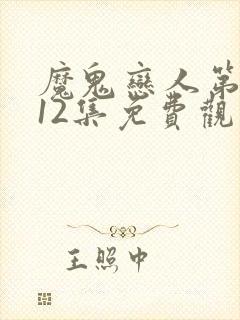 魔鬼戀人第
12集免費觀
王照中